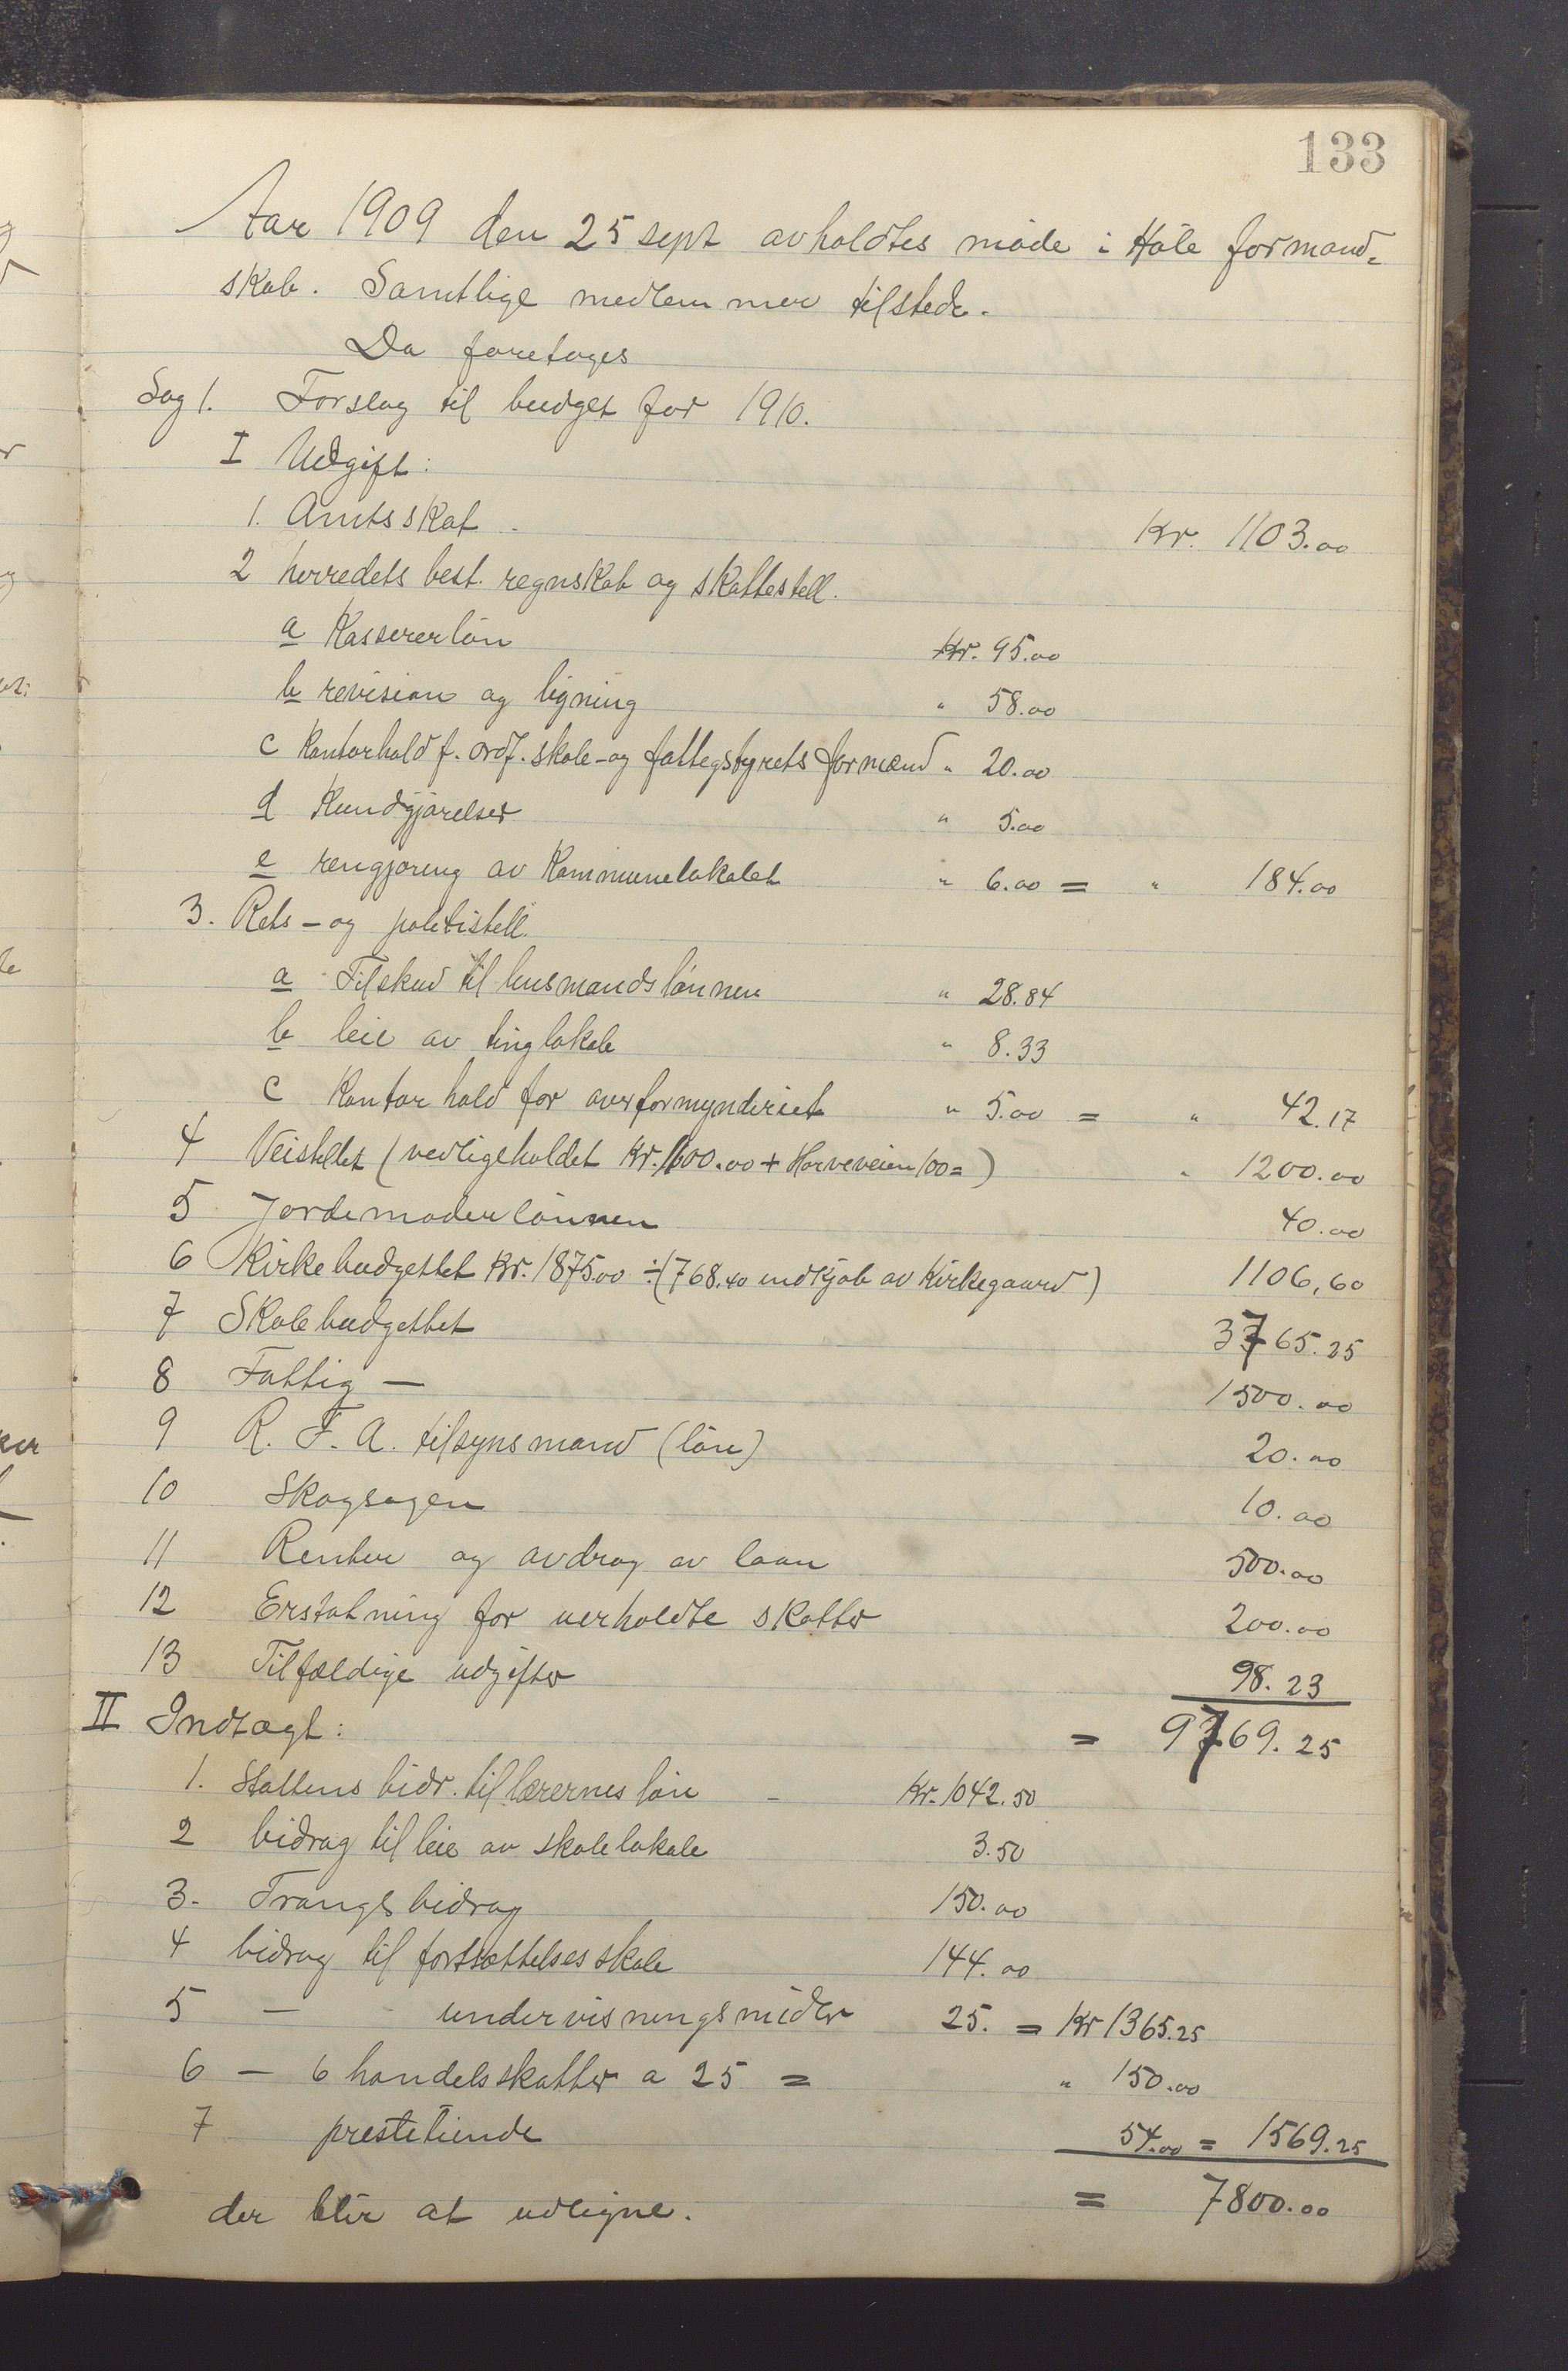 133
Aar 1909 den 25 sept avholdtes møde i Höle formand=
skab. Samtlige medlemmer tilstede.
Da foretoges
Sag 1. Forslag til budget for 1910.
I Udgift:
1. Amtsskat. Kr. 1103.00
2 herredets best. regnskab og skattestell.
a Kassererløn Kr. 95.00
b revision og ligning " 58.00
c Kontorhold f. ordf. skole- og fattegstyrets formænd " 20.00
d Kundgjørelser " 5.00
e rengjøring av Kommunelokalet " 6.00 = " 184.00
3. Rets- og politistell.
a Tilskud til lensmandslønnen " 28.84
b leie av tinglokale " 8.33
c Kontorhold for overformynderiet " 5.00 = " 42.17
4 Veistellet (vedligeholdet Kr. 1100.00 + Horveveien 100=) " 1200.00
5 Jordemoderlønnen 40.00
6 Kirkebudgettet Kr. 1875.00 ÷ (768.40 indkjøb av Kirkegaard) 1106,60
7 Skolebudgettet 3765.25
8 Fattig — 1500.00
9 R. F. A. tilsynsmand (løn) 20.00
10 Skogsagen 10.00
11 Renter og avdrag av laan 500.00
12 Erstatning for uerholdte skatter 200.00
13 Tilfældige udgifter 98.23
II Indtægt: = 9769.25
1. Stattens bidr. til lærernes løn - Kr. 1042.50
2 bidrag til leie av skolelokale 3.50
3. Trangsbidrag 150.00
4 bidrag til fortsættelsesskole 144.00
5 — undervisningsmidler 25. = Kr 1365.25
6 — 6 handelsskatter a 25 = " 150.00
7 prestetiende 54.00 = 1569.25
der blir at udligne. = 7800.00